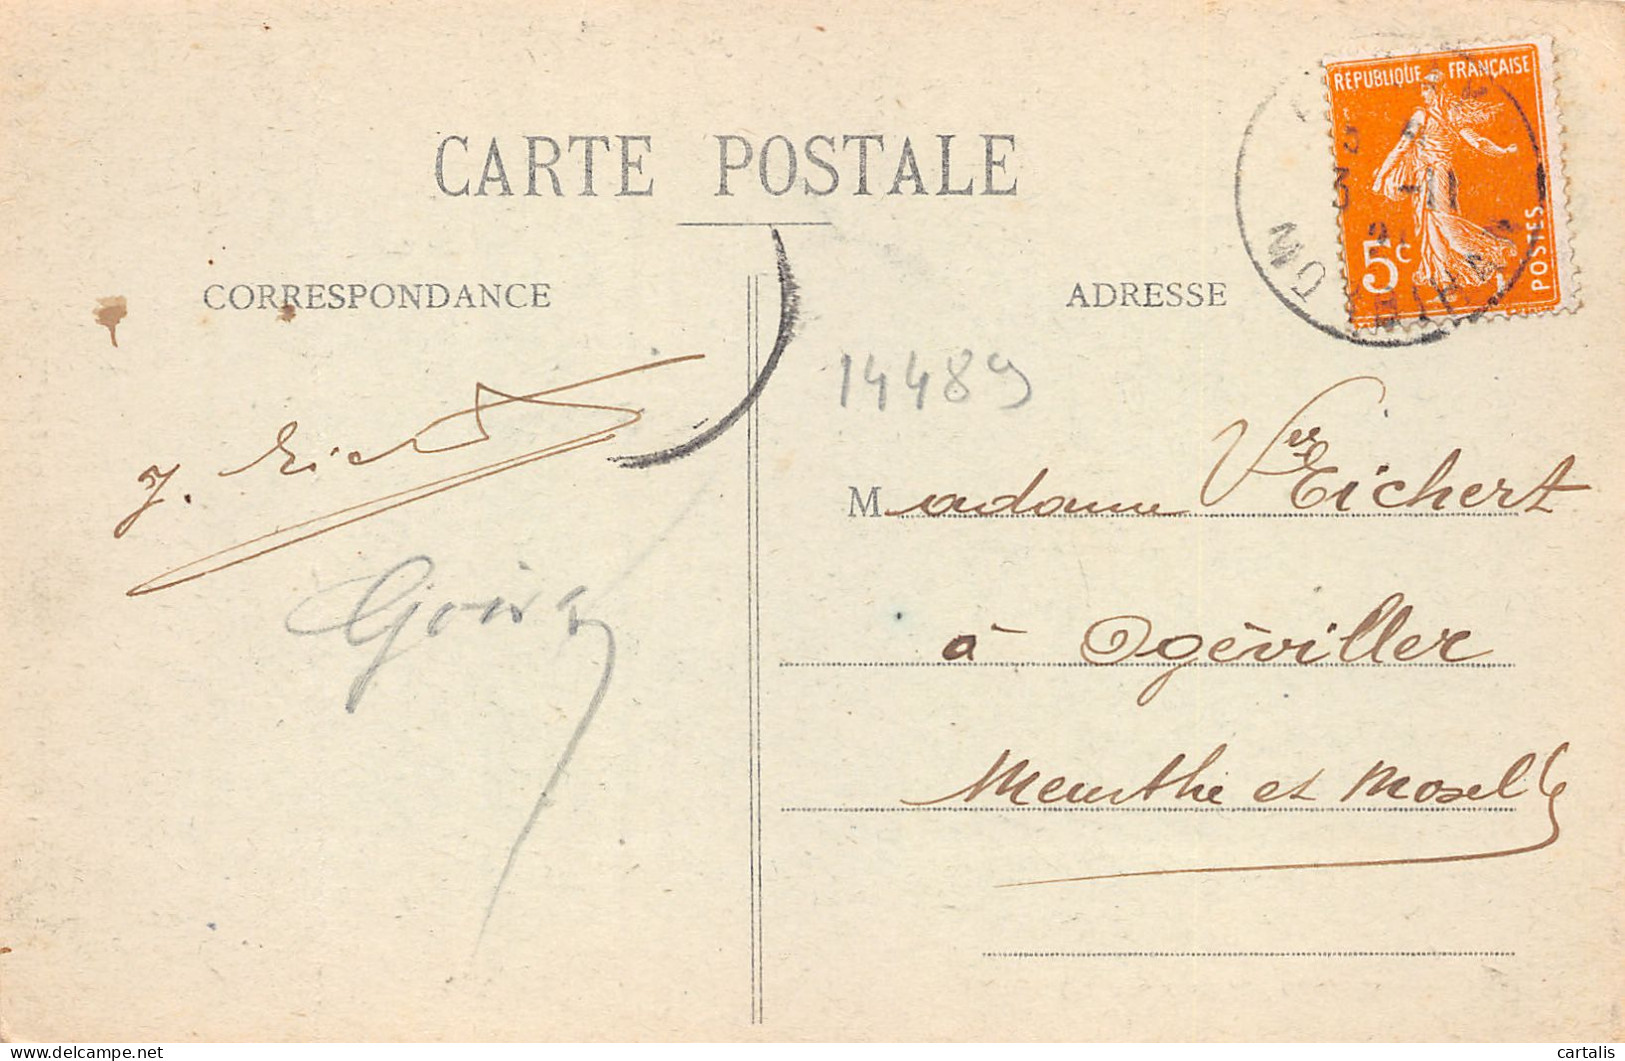 CARTE POSTALE
CORRESPONDANCE
ADRESSE
REPUBLIQUE FRANÇAISE
5c
POSTES
3 -11
14489
J. Eichert
Madame Vve Eichert
à Ogéviller
Meurthe et Moselle
cartalis